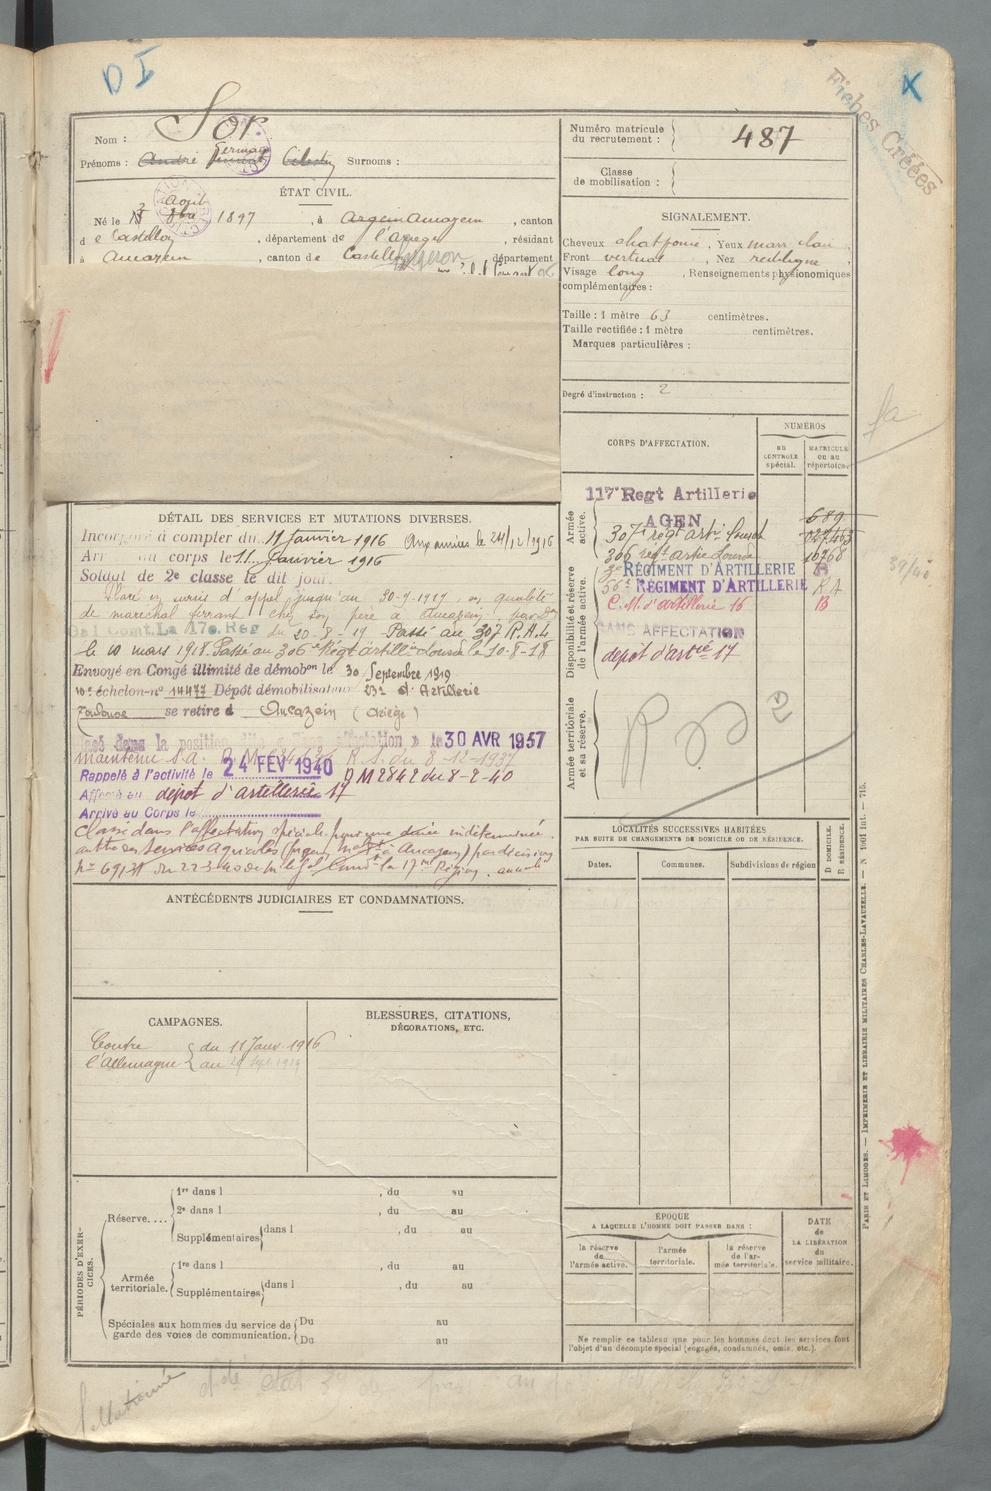 D I
X
Fiches Créées
Nom : Sor
Prénoms : André Germain Célestin Surnoms :
ÉTAT CIVIL.
Né le 3 Août 1897 , à Argein Aucazein , canton
de Castillon , département de l'Ariège , résidant
à Aucazein , canton de Castillon , département
DÉTAIL DES SERVICES ET MUTATIONS DIVERSES.
Incorporé à compter du 11 Janvier 1916
Arr au corps le 11 Janvier 1916
Soldat de 2e classe le dit jour.
Placé en sursis d'appel jusqu'au 30-9-1917 en qualité
de maréchal ferrant chez son père à Aucazein par Dn
Gal Comt. La 17e Reg du 30-8-17 Passé au 307 R.A.L
le 10 mars 1918. Passé au 306e Régt d'artillie lourde le 10-8-18
Envoyé en Congé illimité de démobon le 30 Septembre 1919
10e échelon-no 14477 Dépôt démobilisateur 23e d'Artillerie
Toulouse se retire à Aucazein (Ariège)
dans la position » le 30 AVR 1937
maintenu S.A. du 8-12-1937
Rappelé à l'activité le 24 FEV 1940 D M 2842 du 8-2-40
Affecté au dépôt d'artillerie 17
Arrivé au Corps le
Classé dans l'affectation spéciale pour une durée indéterminée
au titre des Services Agricoles à Aucazein) par décision
no 6913 du 22-3-40 la 17me Région.
ANTÉCÉDENTS JUDICIAIRES ET CONDAMNATIONS.
CAMPAGNES.
Contre { du 11 Janv. 1916
l'Allemagne { au 29 Sept 1919
BLESSURES, CITATIONS,
DÉCORATIONS, ETC.
PÉRIODES D'EXERCICES.
Réserve....
1re dans l , du au
2e dans l , du au
Supplémentaires dans l , du au
Armée territoriale.
1re dans l , du au
Supplémentaires dans l , du au
Spéciales aux hommes du service de garde des voies de communication.
Du au
Du au
Numéro matricule
du recrutement : 487
Classe
de mobilisation :
SIGNALEMENT.
Cheveux chat foncé , Yeux marr clair ,
Front vertical , Nez rectiligne ,
Visage long , Renseignements physionomiques
complémentaires :
Taille : 1 mètre 63 centimètres.
Taille rectifiée : 1 mètre centimètres.
Marques particulières :
Degré d'instruction : 2
CORPS D'AFFECTATION.
NUMÉROS
au
CONTROLE
spécial.
MATRICULE
ou au
répertoire.
Armée active.
117e Regt Artillerie
AGEN 689
307e régt arti Lourde
306 régt artie Lourde 10768
Disponibilité et réserve de l'armée active.
3e RÉGIMENT D'ARTILLERIE
56e RÉGIMENT D'ARTILLERIE
C.M. d'artillerie 16
SANS AFFECTATION
dépôt d'artie 17
Armée territoriale et sa réserve.
LOCALITÉS SUCCESSIVES HABITÉES
PAR SUITE DE CHANGEMENTS DE DOMICILE OU DE RÉSIDENCE.
Dates.
Communes.
Subdivisions de région
D DOMICILE.
R RÉSIDENCE.
ÉPOQUE
A LAQUELLE L'HOMME DOIT PASSER DANS :
la réserve
de
l'armée active.
l'armée
territoriale.
la réserve
de l'ar-
mée territoriale.
DATE
de
LA LIBÉRATION
du
service militaire.
Ne remplir ce tableau que pour les hommes dont les services font
l'objet d'un décompte spécial (engagés, condamnés, omis, etc.).
PARIS ET LIMOGES. — IMPRIMERIE ET LIBRAIRIE MILITAIRES CHARLES-LAVAUZELLE. — N 1001 Int. — 715.